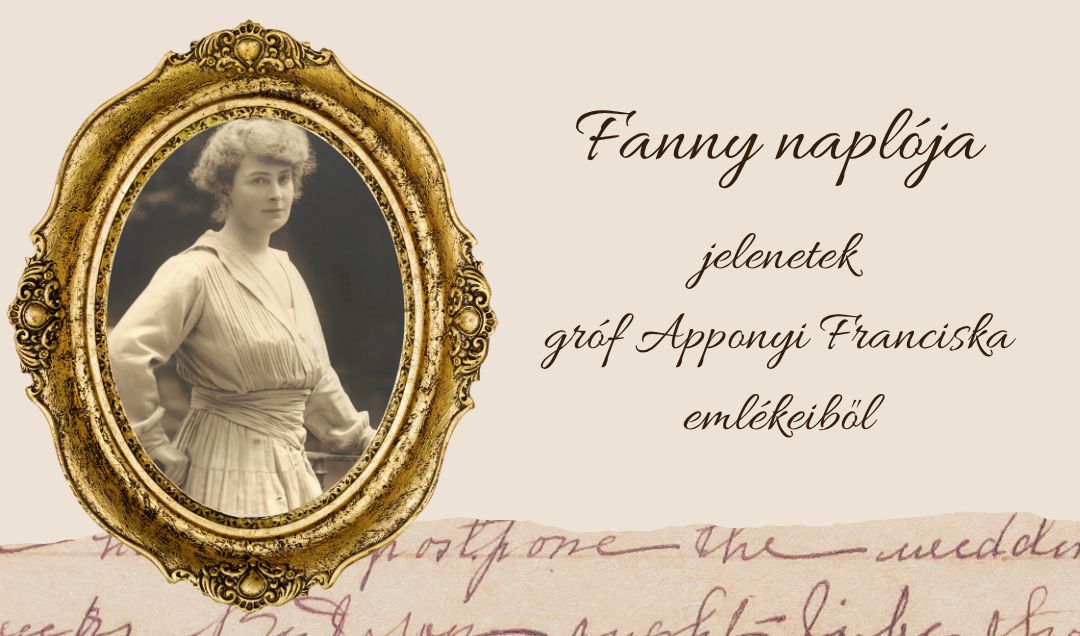 Fanny naplója
jelenetek
gróf Apponyi Franciska
emlékeiből
postpone the